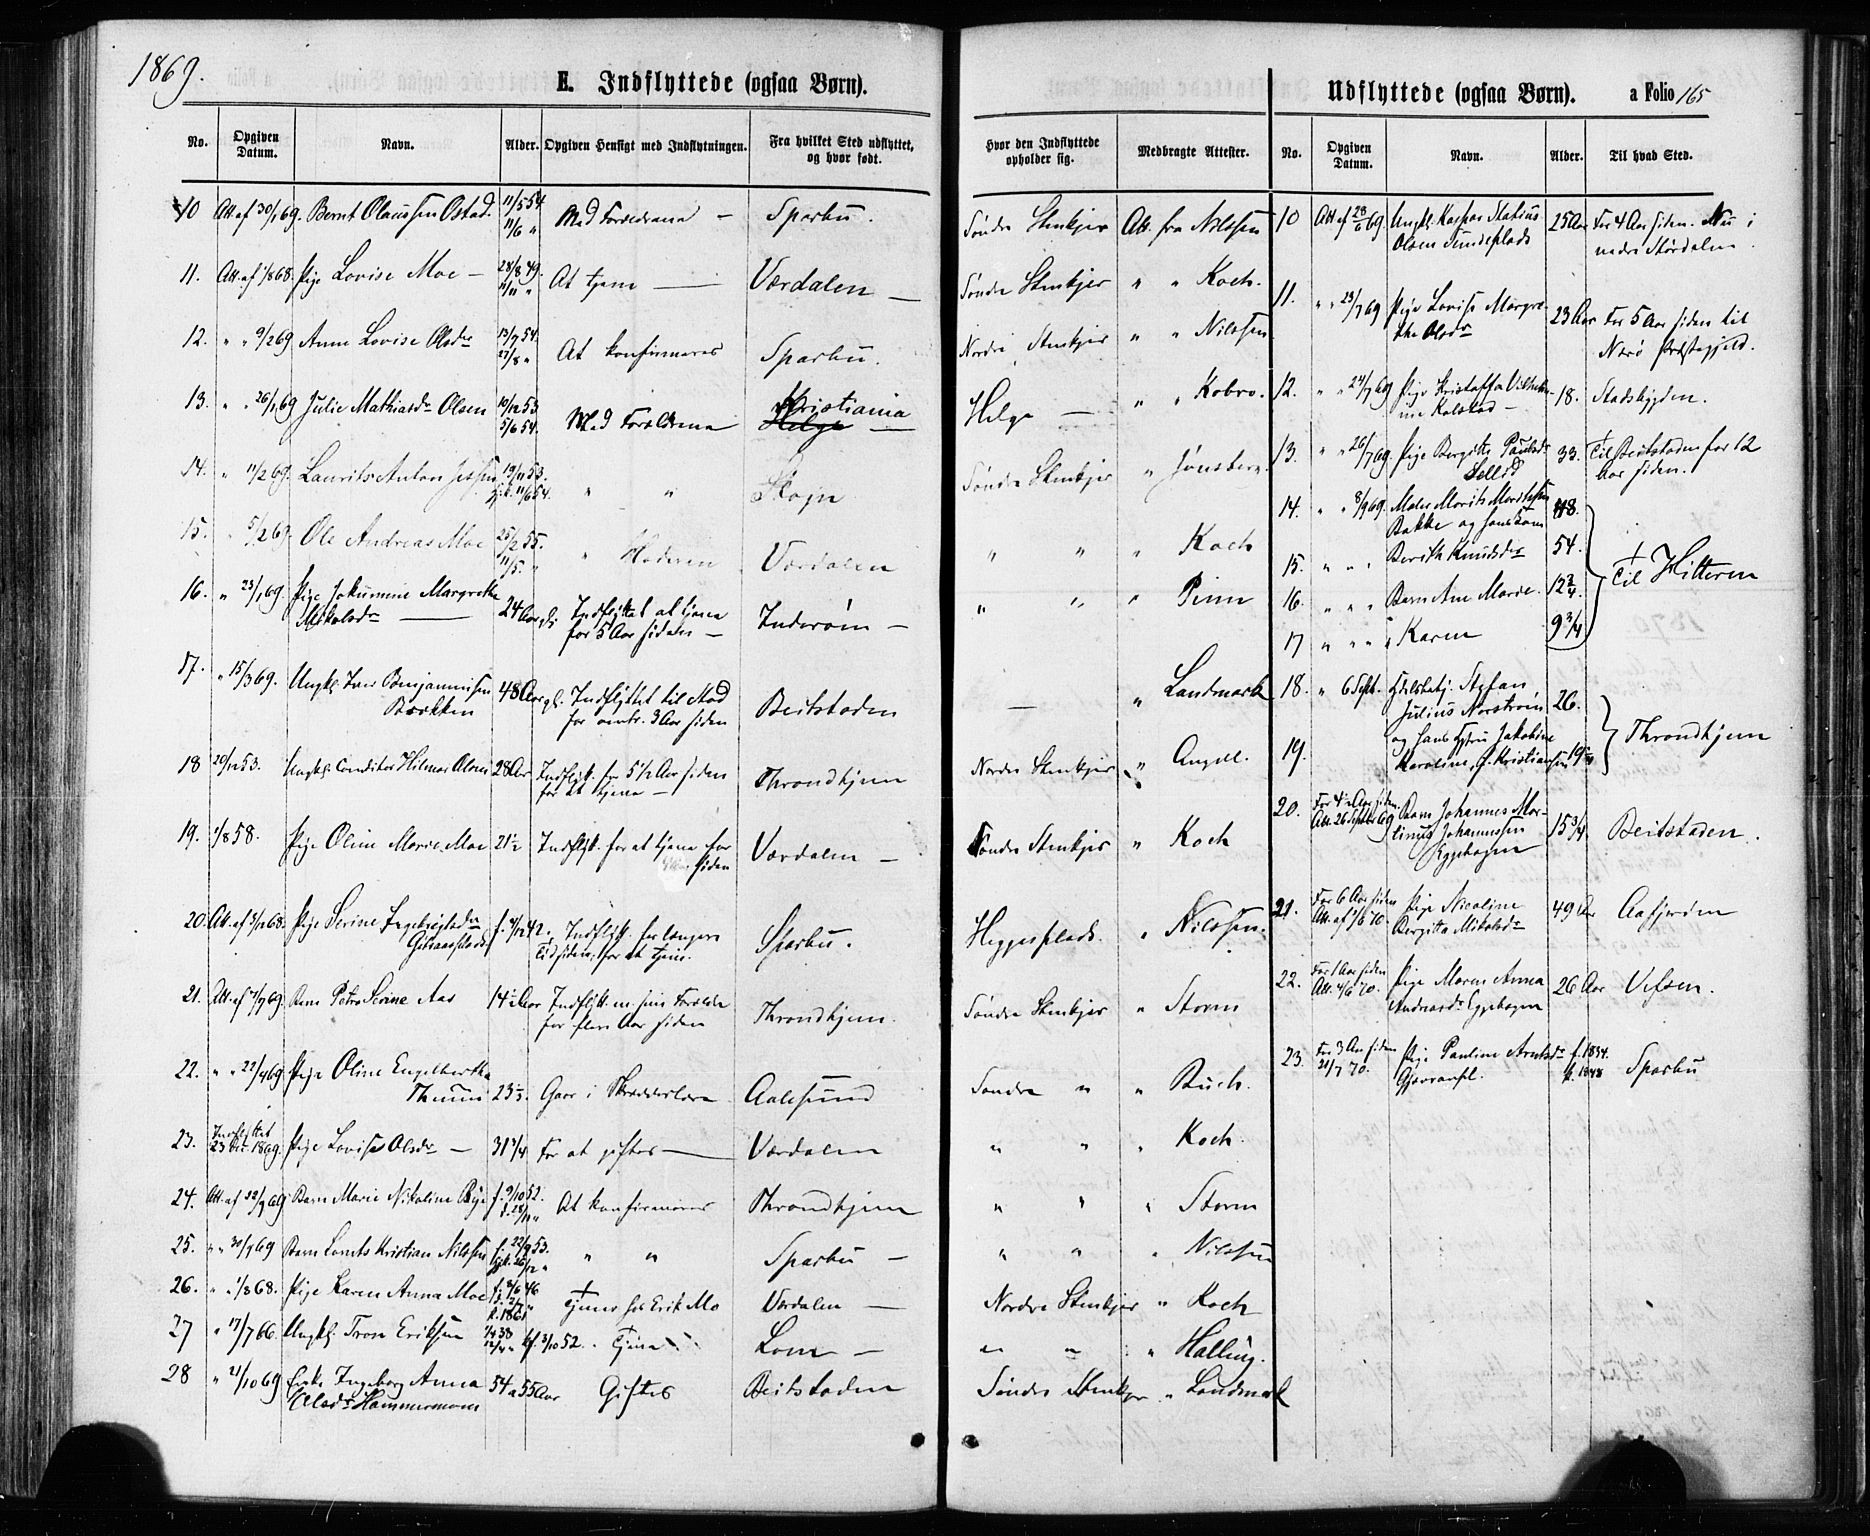 1869.
E. Indflyttede (ogsaa Børn).
No. Opgiven Datum. Navn. Alder. Opgiven Hensigt med Indflytningen. Fra hvilket Sted udflyttet, og hvor født. Hvor den Indflyttede opholder sig. Medbragte Attester.
10 Att. af 30/1 69. Bernt Olaussen Østad. 11/5 54 11/6 " Med Forældrene — Sparbu. Søndre Stenkjer Att. fra Nilssen
11. Att. af 1/8 68. Pige Lovise Moe — 28/8 49. 11/11 " At tjene — Værdalen — Søndre Stenkjer " " Koch.
12. " " 9/2 69 Anne Lovise Olsdr 13/7 54. 27/8 " At konfirmeres Sparbu. Nordre Stenkjer " " Nilssen
13. " " 26/1 69 Julie Mathiasdr Olsen 10/12 53. 5/6 54. Med Forældrene Kristiania Helge — Helge — " " Kobro.
14. " 11/2 69. Laurits Anton Jessen 19/11 53. 11/6 54. " " Skojn Søndre Stenkjer " Jønsberg.
15. " 5/2 69. Ole Andreas Moe 25/2 55. 11/5. " " Moderen Værdalen " " " Koch
16. " 23/1 69. Pige Jokumine Margrethe Mikalsdr — 24 Aar gl. Indflyttet at tjene for 5 Aar siden — Inderøen — " " " Pinn
17. " 15/3 69. Ungkl. Iver Benjaminsen Bækken 48 Aar gl. Indflyttet til Stad for omtr. 3 Aar siden Beitstaden — " Landmark
18 20/12 53. Ungkl. Conditor Hilmar Olsen 28 Aar Indflytt. for 5 1/2 Aar siden for at tjene — Throndhjem Nordre Stenkjer " Angell.
19. 1/8 58. Pige Oline Marie Moe 21 1/2 Indflytt. for at tjene for siden Værdalen — Søndre Stenkjer " Koch
20. Att. af 3/12 68. Pige Serine Ingebrigtsdr f. 4/12 42. Indflytt. for længere Tid siden, for at tjene. Sparbu. Heggesplads. " Nilssen.
21. Att. af 7/7 69. Barn Petra Serine Aas 14 1/2 Aar Indflytt. m. sine Forældre for flere Aar siden Throndhjem. Søndre Stenkjer " Storm
22. " " 22/4 69 Pige Oline Engelbertha Thuun 23 1/2. Gaar i Skrædderlære Aalesund Søndre " " Buch.
23. Indflyttet 23 Oct. 1869. Pige Lovise Olsdr — 31 3/4 For at giftes — Værdalen " " " Koch.
24. Att. af 22/9 69 Barn Marie Nikoline Bye f. 9/10 52. At konfirmeres Throndhjem " " " Storm
25. " " 30/9 69 Barn Lorents Kristian Nilssen f. 22/9 53. " " Sparbu — " " " Nilssen
26. " " 1/8 68. Pige Karen Anna Moe f. 8/6 46 k. 1861 Tjener hos Erik Mo Værdalen — Nordre Stenkjer " Koch
27 " 17/7 66. Ungkl. Tron Eriksen 3/10 52. Tjene Lom — " " " Halling.
28 " 21/10 69 Enke Ingeborg Anna Olsdr Hammermoen 54 a 55 Aar Giftes Beitstaden Søndre Stenkjer " Landmark
Udflyttede (ogsaa Børn). a Folio 165
No. Opgiven Datum. Navn. Alder. Til hvad Sted.
10 Att. af 28/6 69. Ungkl. Kaspar Matius Olsen Sundsplads 25 Aar For 4 Aar siden. Nu i nedre Størdalen.
11. " " 23/7 69 Pige Lovise Margrethe Olsdr 23 Aar For 5 Aar siden til Nærø Præstegjeld.
12. " " 24/7 69 Pige Kristoffa Vilhelmine Kolstad — 18. Stadsbygden.
13. " " 26/7 69. Pige Bergitte Paulsdr 33. Til Beitstaden for 12 Aar siden.
14. " " 8/9 69. Maler Morits Moritssen Bakke og hans Kone 48.
15. " " " Berith Knudsdr 54. Til Hitteren
16. " " " Barn Ane Marie. 12 3/4.
17 " " " " Karen 9 3/4
18. " 6 Sept. Stefan Julius Norstrøm 26. Throndhjem
19. og hans Hustru Jakobine Karoline, f. Kristiansen 19
20. For 4 1/2 Aar siden. Att. 26 Septbr 69 Barn Johannes Martinus Johannessen Eggehagen 15 3/4 Beitstaden.
21. For 6 Aar siden Att. af 1/6 70. Pige Nicoline Bergitta Mikalsdr 49 Aar Aafjorden
22. For 1 Aar siden Att. 4/6 70. Pige Maren Anna Andreasdr Eggehagen 26 Aar Vefsen.
23. For 3 Aar siden 21/7 70. Pige Pauline Arntsdr f. 1834. k. 1848 Sparbu